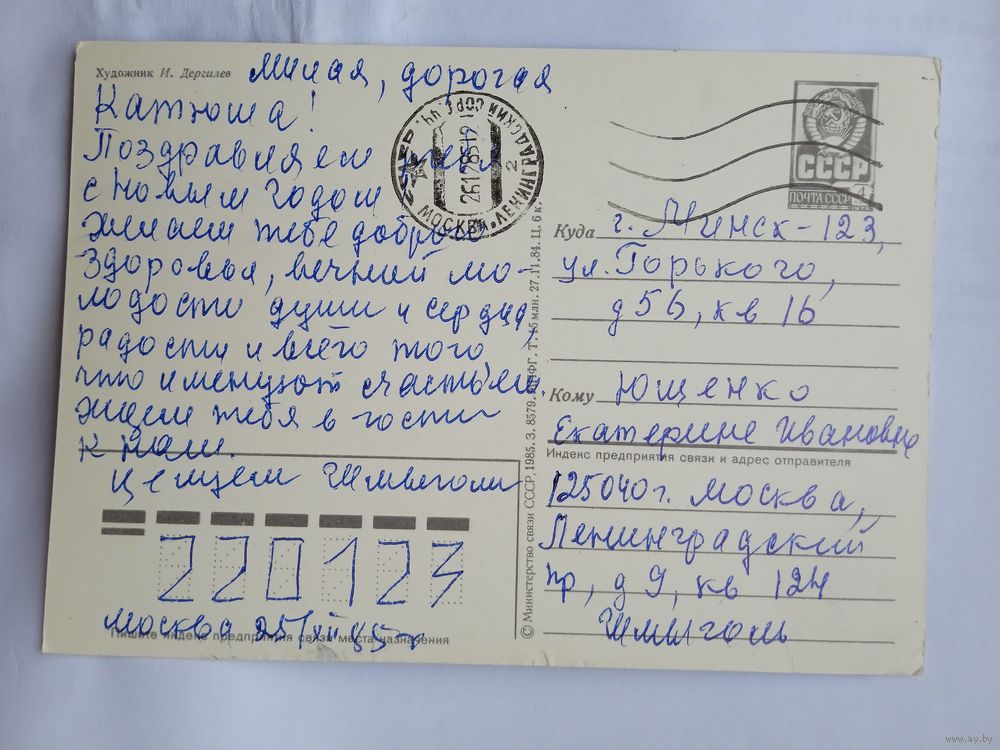 Художник И. Дергилев
Милая, дорогая
Катюша!
Поздравляем
с Новым годом
Желаем тебе доброго
здоровья, вечной мо-
лодости души и сердца,
радости и всего того
что именуют счастьем.
Ждем тебя в гости
к нам.
Целуем Шмыголи
220123
Москва 25/XII 85 г
Пишите индекс предприятия связи места назначения
© Министерство связи СССР, 1985. З. 8579. ППФГ. Т. 15 млн. 27.11.84. Ц. 6 к.
МОСКВА ЛЕНИНГРАДСКИЙ
261285-19
2
СССР
ПОЧТА СССР 4
Куда г. Минск-123,
ул. Горького,
д 56, кв 16
Кому Ющенко
Екатерине Ивановне
Индекс предприятия связи и адрес отправителя
125040 г. Москва,
Ленинградский
пр, д 9, кв 124
Шмыголь
www.ay.by